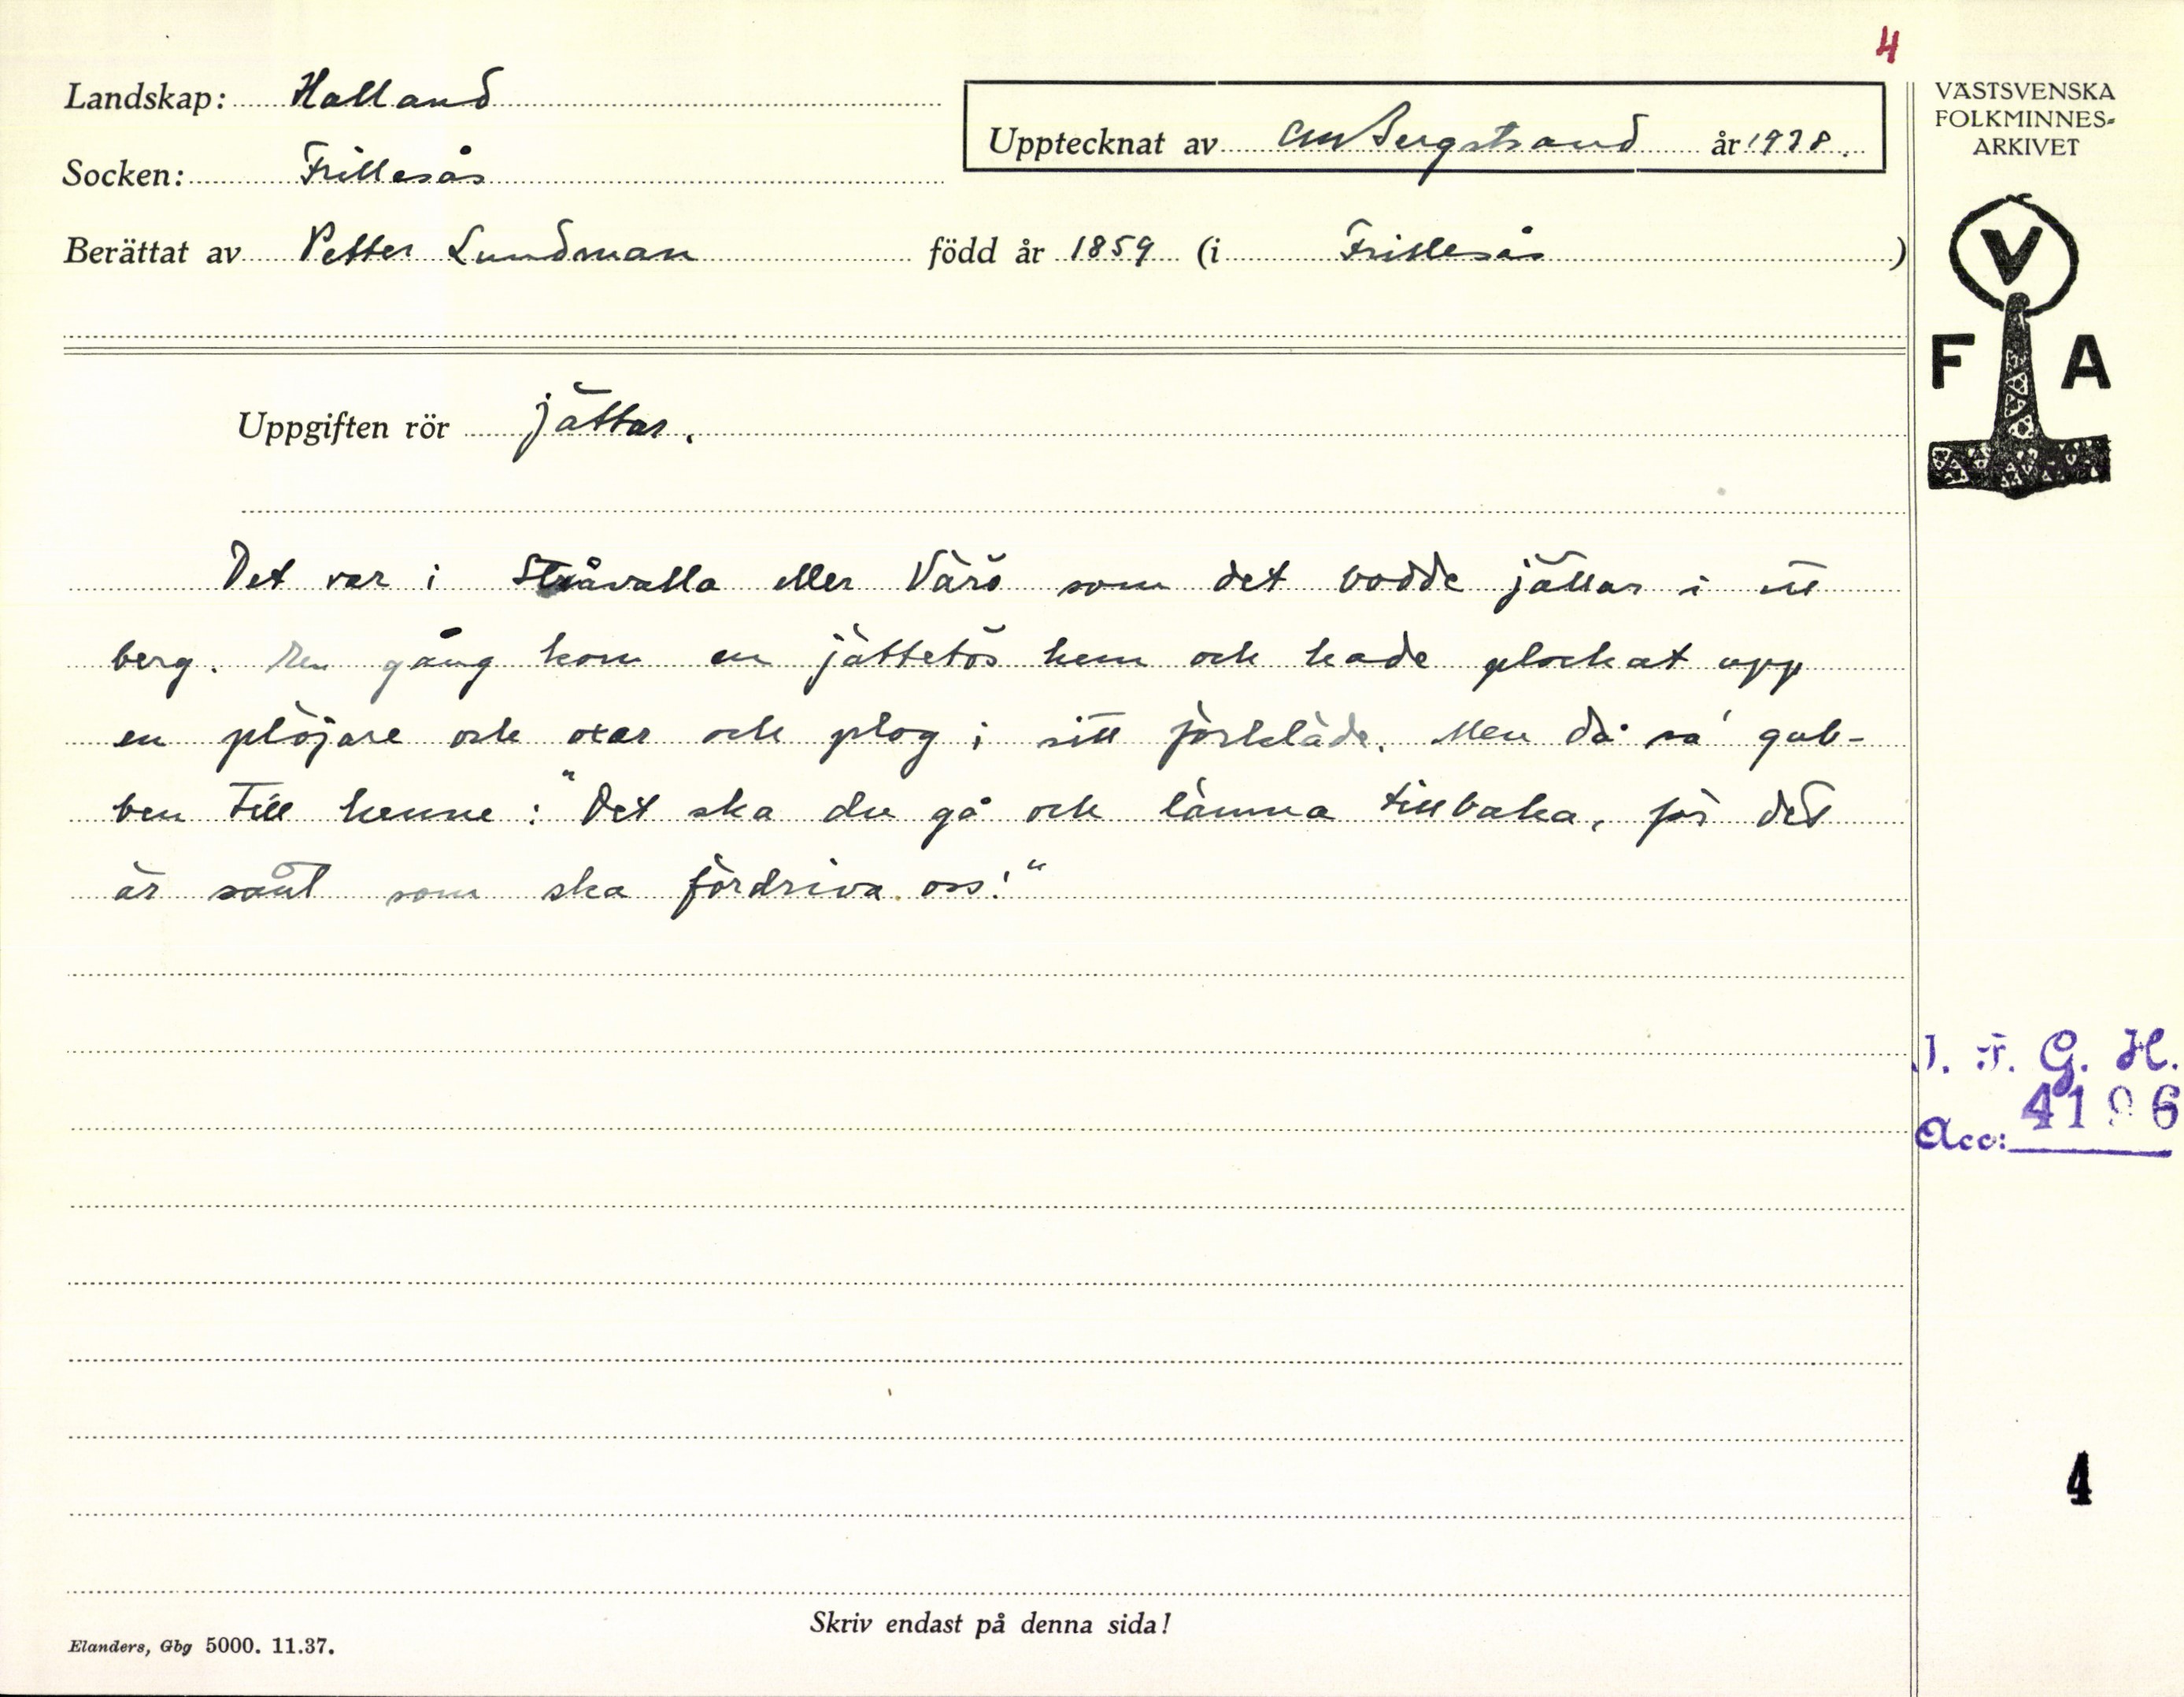 4
Landskap: Halland
Upptecknat av CM Bergstrand år 1938.
VÄSTSVENSKA
FOLKMINNES-
ARKIVET
Socken: Frillesås
Berättat av Petter Lundman född år 1859 (i Frillesås)
V
F A
Uppgiften rör jättar.
Det var i Stråvalla eller Värö som det bodde jättar i ett
berg. En gång kom en jättetös hem och hade plockat upp
en plöjare och oxar och plog i sitt förkläde. Men då sa' gub-
ben till henne: "Det ska du gå och lämna tillbaka, för det
är sånt som ska fördriva oss!"
I. F. G. H.
Acc: 4196
4
Skriv endast på denna sida!
Elanders, Gbg 5000. 11.37.